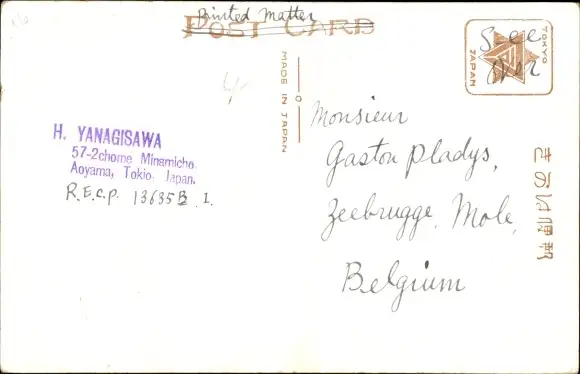 Printed Matter
POST CARD
See
Over
TOKYO
JAPAN
MADE IN JAPAN
H. YANAGISAWA
57-2chome Minamicho,
Aoyama, Tokio, Japan.
R.E.C.P. 13635B I.
Monsieur
Gaston Pladys,
Zeebrugge, Mole,
Belgium
きかは便郵